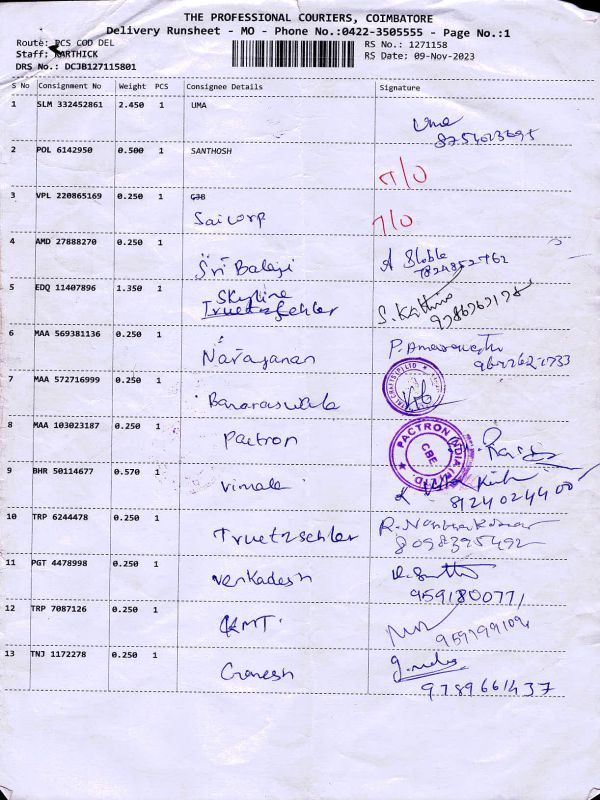 THE PROFESSIONAL COURIERS, COIMBATORE
Delivery Runsheet - MO - Phone No.:0422-3505555 - Page No.:1
Route: PCS COD DEL
RS No.: 1271158
Staff: KARTHICK
RS Date: 09-Nov-2023
DRS No.: DCJB127115801
S No Consignment No Weight PCS Consignee Details Signature
1 SLM 332452861 2.450 1 UMA
Uma
2 POL 6142950 0.500 1 SANTHOSH
3 VPL 220865169 0.250 1 GJB
Saicorp
4 AMD 27888270 0.250 1
Sri Balaji
5 EDQ 11407896 1.350 1
Skyline
Truetzschler
6 MAA 569381136 0.250 1
Narayanan
7 MAA 572716999 0.250 1
Banaraswala
8 MAA 103023187 0.250 1
Pactron
PACTRON INDIA (P) LTD
CBE
9 BHR 50114677 0.570 1
Vimala
8124024400
10 TRP 6244478 0.250 1
Truetzschler
8098395492
11 PGT 4478998 0.250 1
Venkadesh
9591800771
12 TRP 7087126 0.250 1
KMT.
13 TNJ 1172278 0.250 1
Ganesh
9789661437